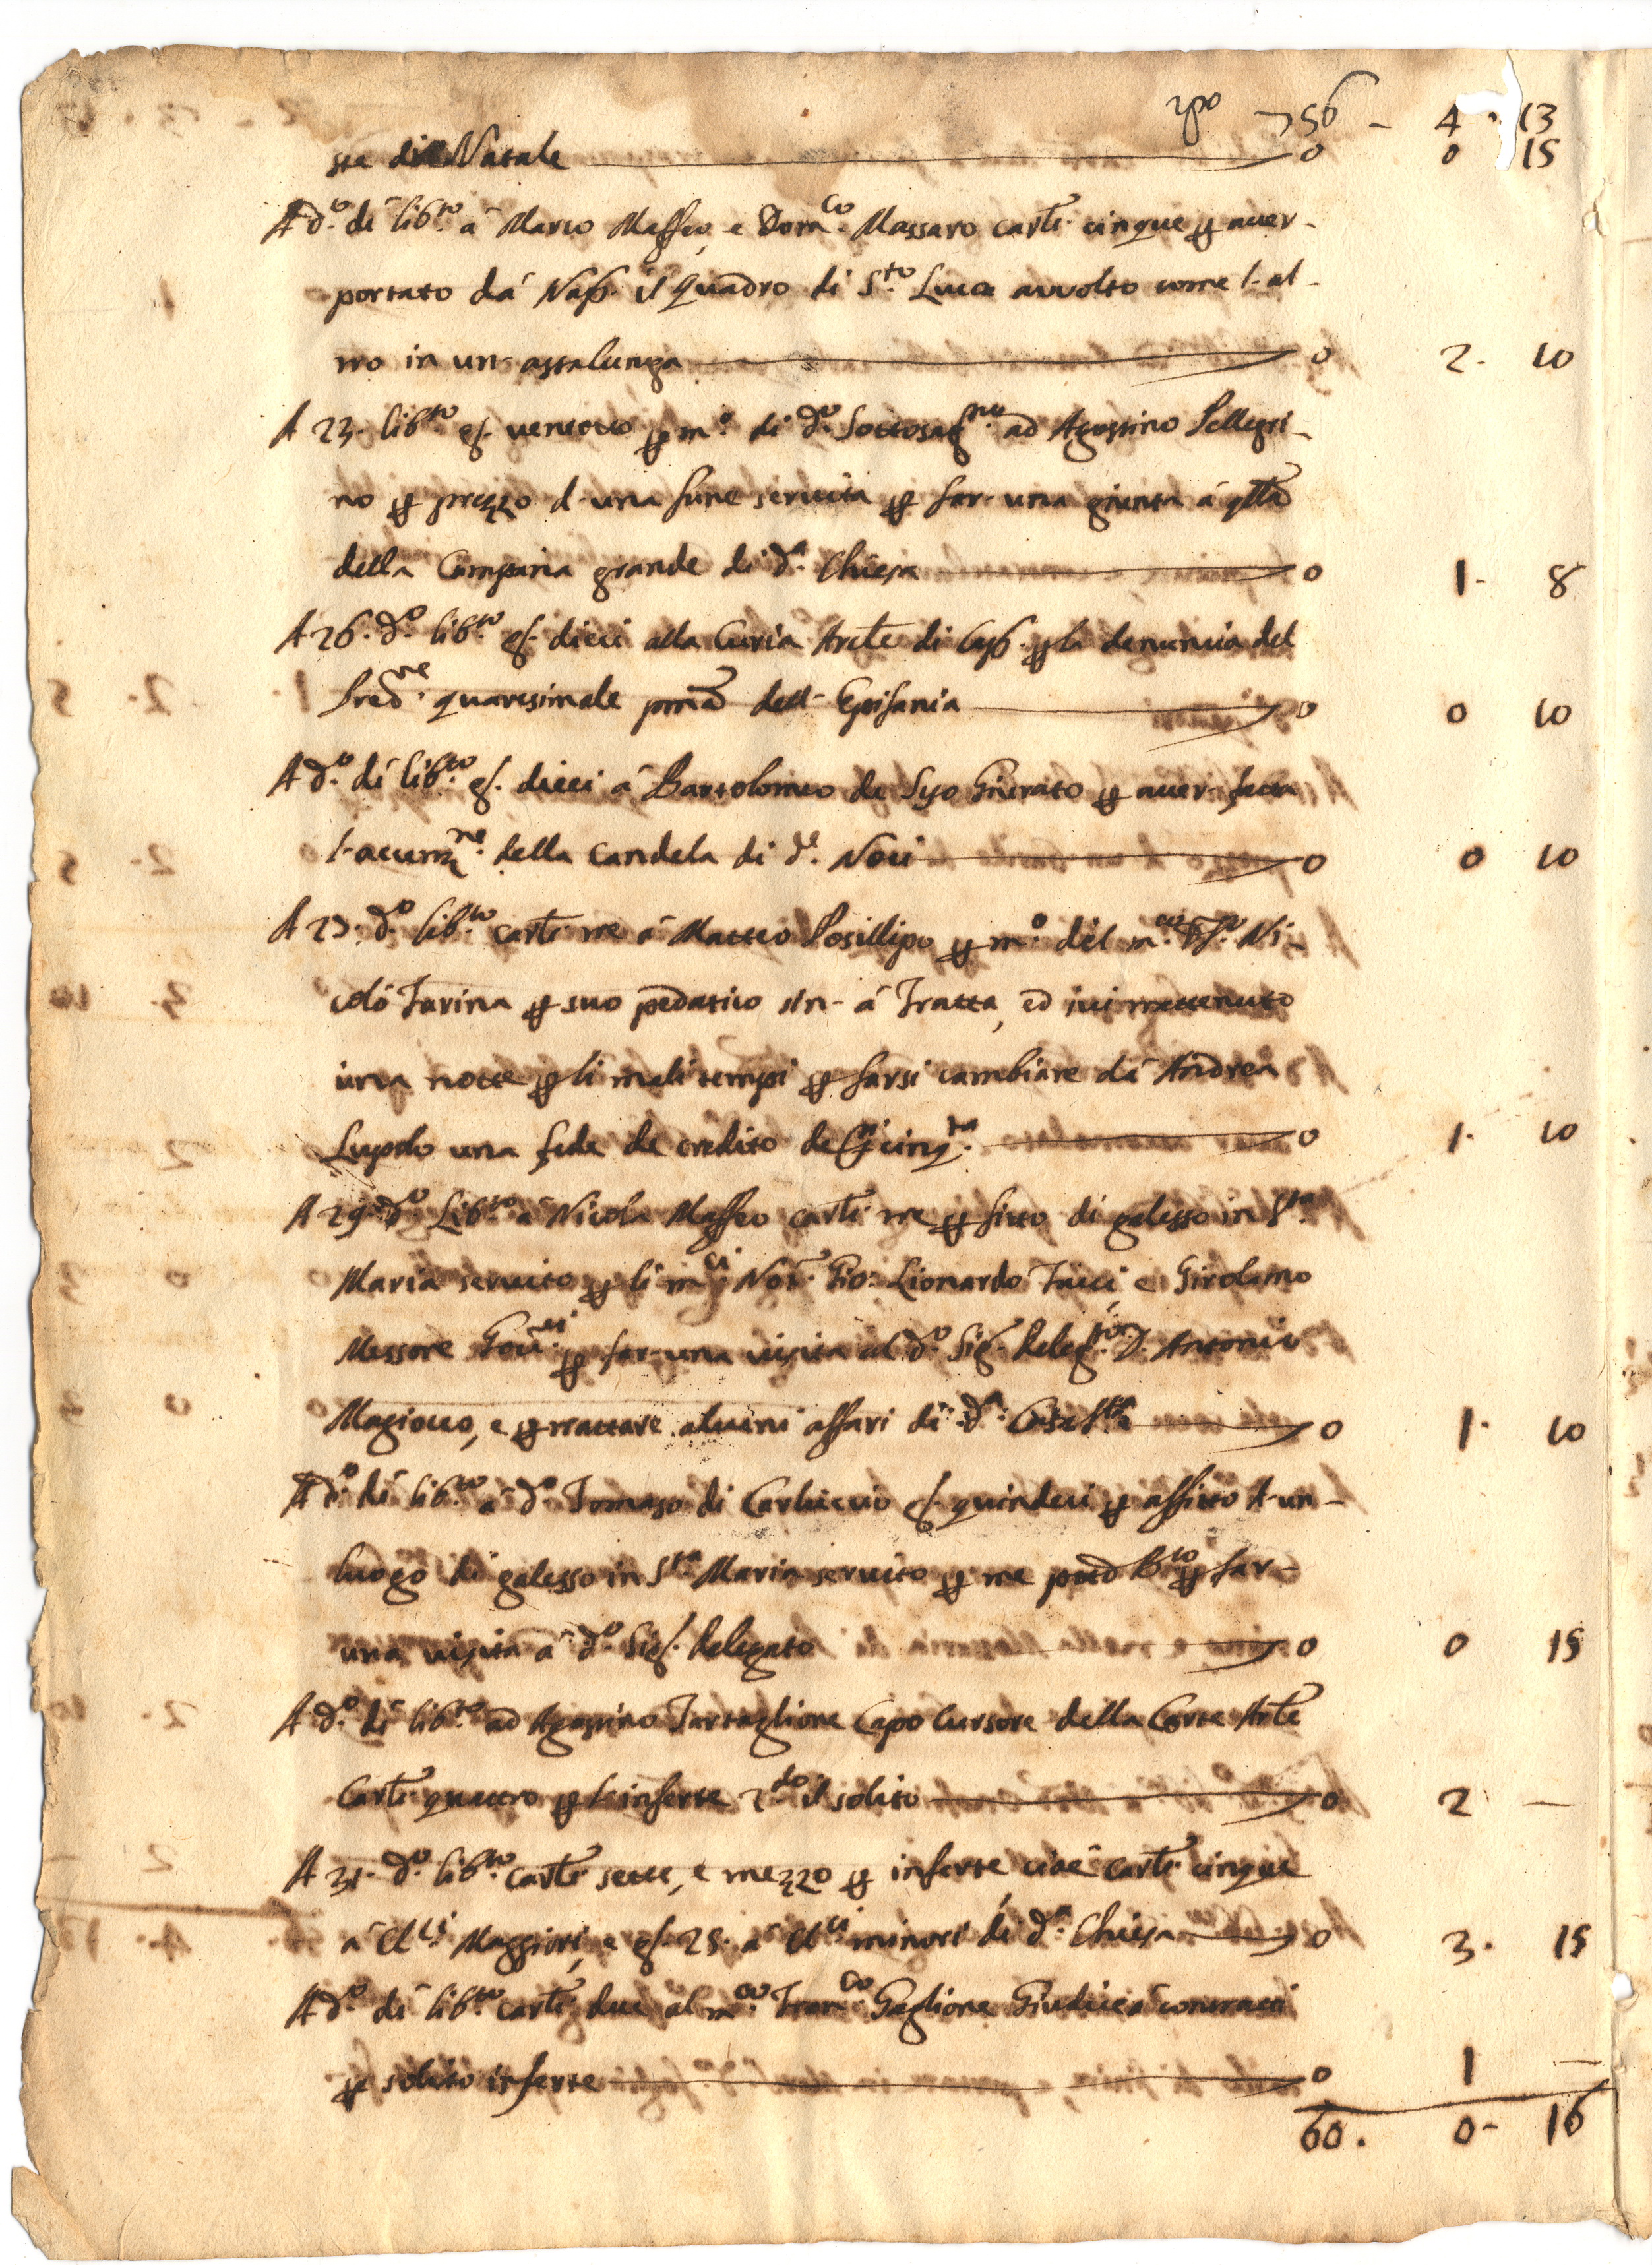 56 - 4 · 13
ste di Natale 0 0 15
A d.o dì lib.to à Marco Maffeo, e Dom.co Massaro carl.i cinque p aver-
portato dà Nap. il Quadro di S.to Luca avvolto come l'al-
tro in un'astalunga 0 2 · 10
A 23 · lib.to g. ventotto p m.o di d.o ad Agostino Pellegri-
no p prezzo d'una fune servita p far una giunta à qlla
della Campana grande di d.a Chiesa 0 1 · 8
A 26 · d.o lib.to g. dieci alla Curia Arcle di Cap. p la denuncia del
Pred.re quaresimale pma dell'Epifania 0 0 10
A d.o dì lib.to g. dieci à Bartolomeo de Giurato p aver fatta
l'accenz.ne della Candela di d.e Noci 0 0 10
A 27 · d.o lib.to carl.i tre à Matteo Posillipo p m.o del m.co Ni-
colò Farina p suo pedatico sin' à Fratta, ed ivi trattenuto
una notte p li mali tempi p farsi cambiare dà Andrea
Lupolo una fede de credito de 0 1 · 10
A 29 d.o Lib.to à Nicola Maffeo carl.i tre p fitto di galesso in S.ta
Maria servito p li m.ci Not.r Gio: Lionardo Tucci, e Girolamo
Messore Gov.ri p far una visita al d.o Sig.r Deleg.to D. Antonio
Magiocco, e p trattare alcuni affari di d.a Casa S.ta 0 1 · 10
A d.o dì lib.to à d.o Tomaso di Carluccio g. quindeci p affitto d'un-
luogo di galesso in S.ta Maria servito p me p far-
una visita à d.o Sig.r Delegato 0 0 15
A d.o dì lib.to ad Agostino Tartaglione Capo Cursore della Corte Arcle
Carl.i quattro p le inferte 2.do il solito 0 2 —
A 31 · d.o lib.to carl.i sette, e mezzo p inferte cioè carl.i cinque
à Cl.ci Maggiori, e g. 25 · à Cl.ci minori di d.a Chiesa 0 3 · 15
A d.o dì lib.to carl.i due al m.co Fran.co Gaglione Giudice à contratti
p solito inferte 0 1 —
60 · 0 - 16